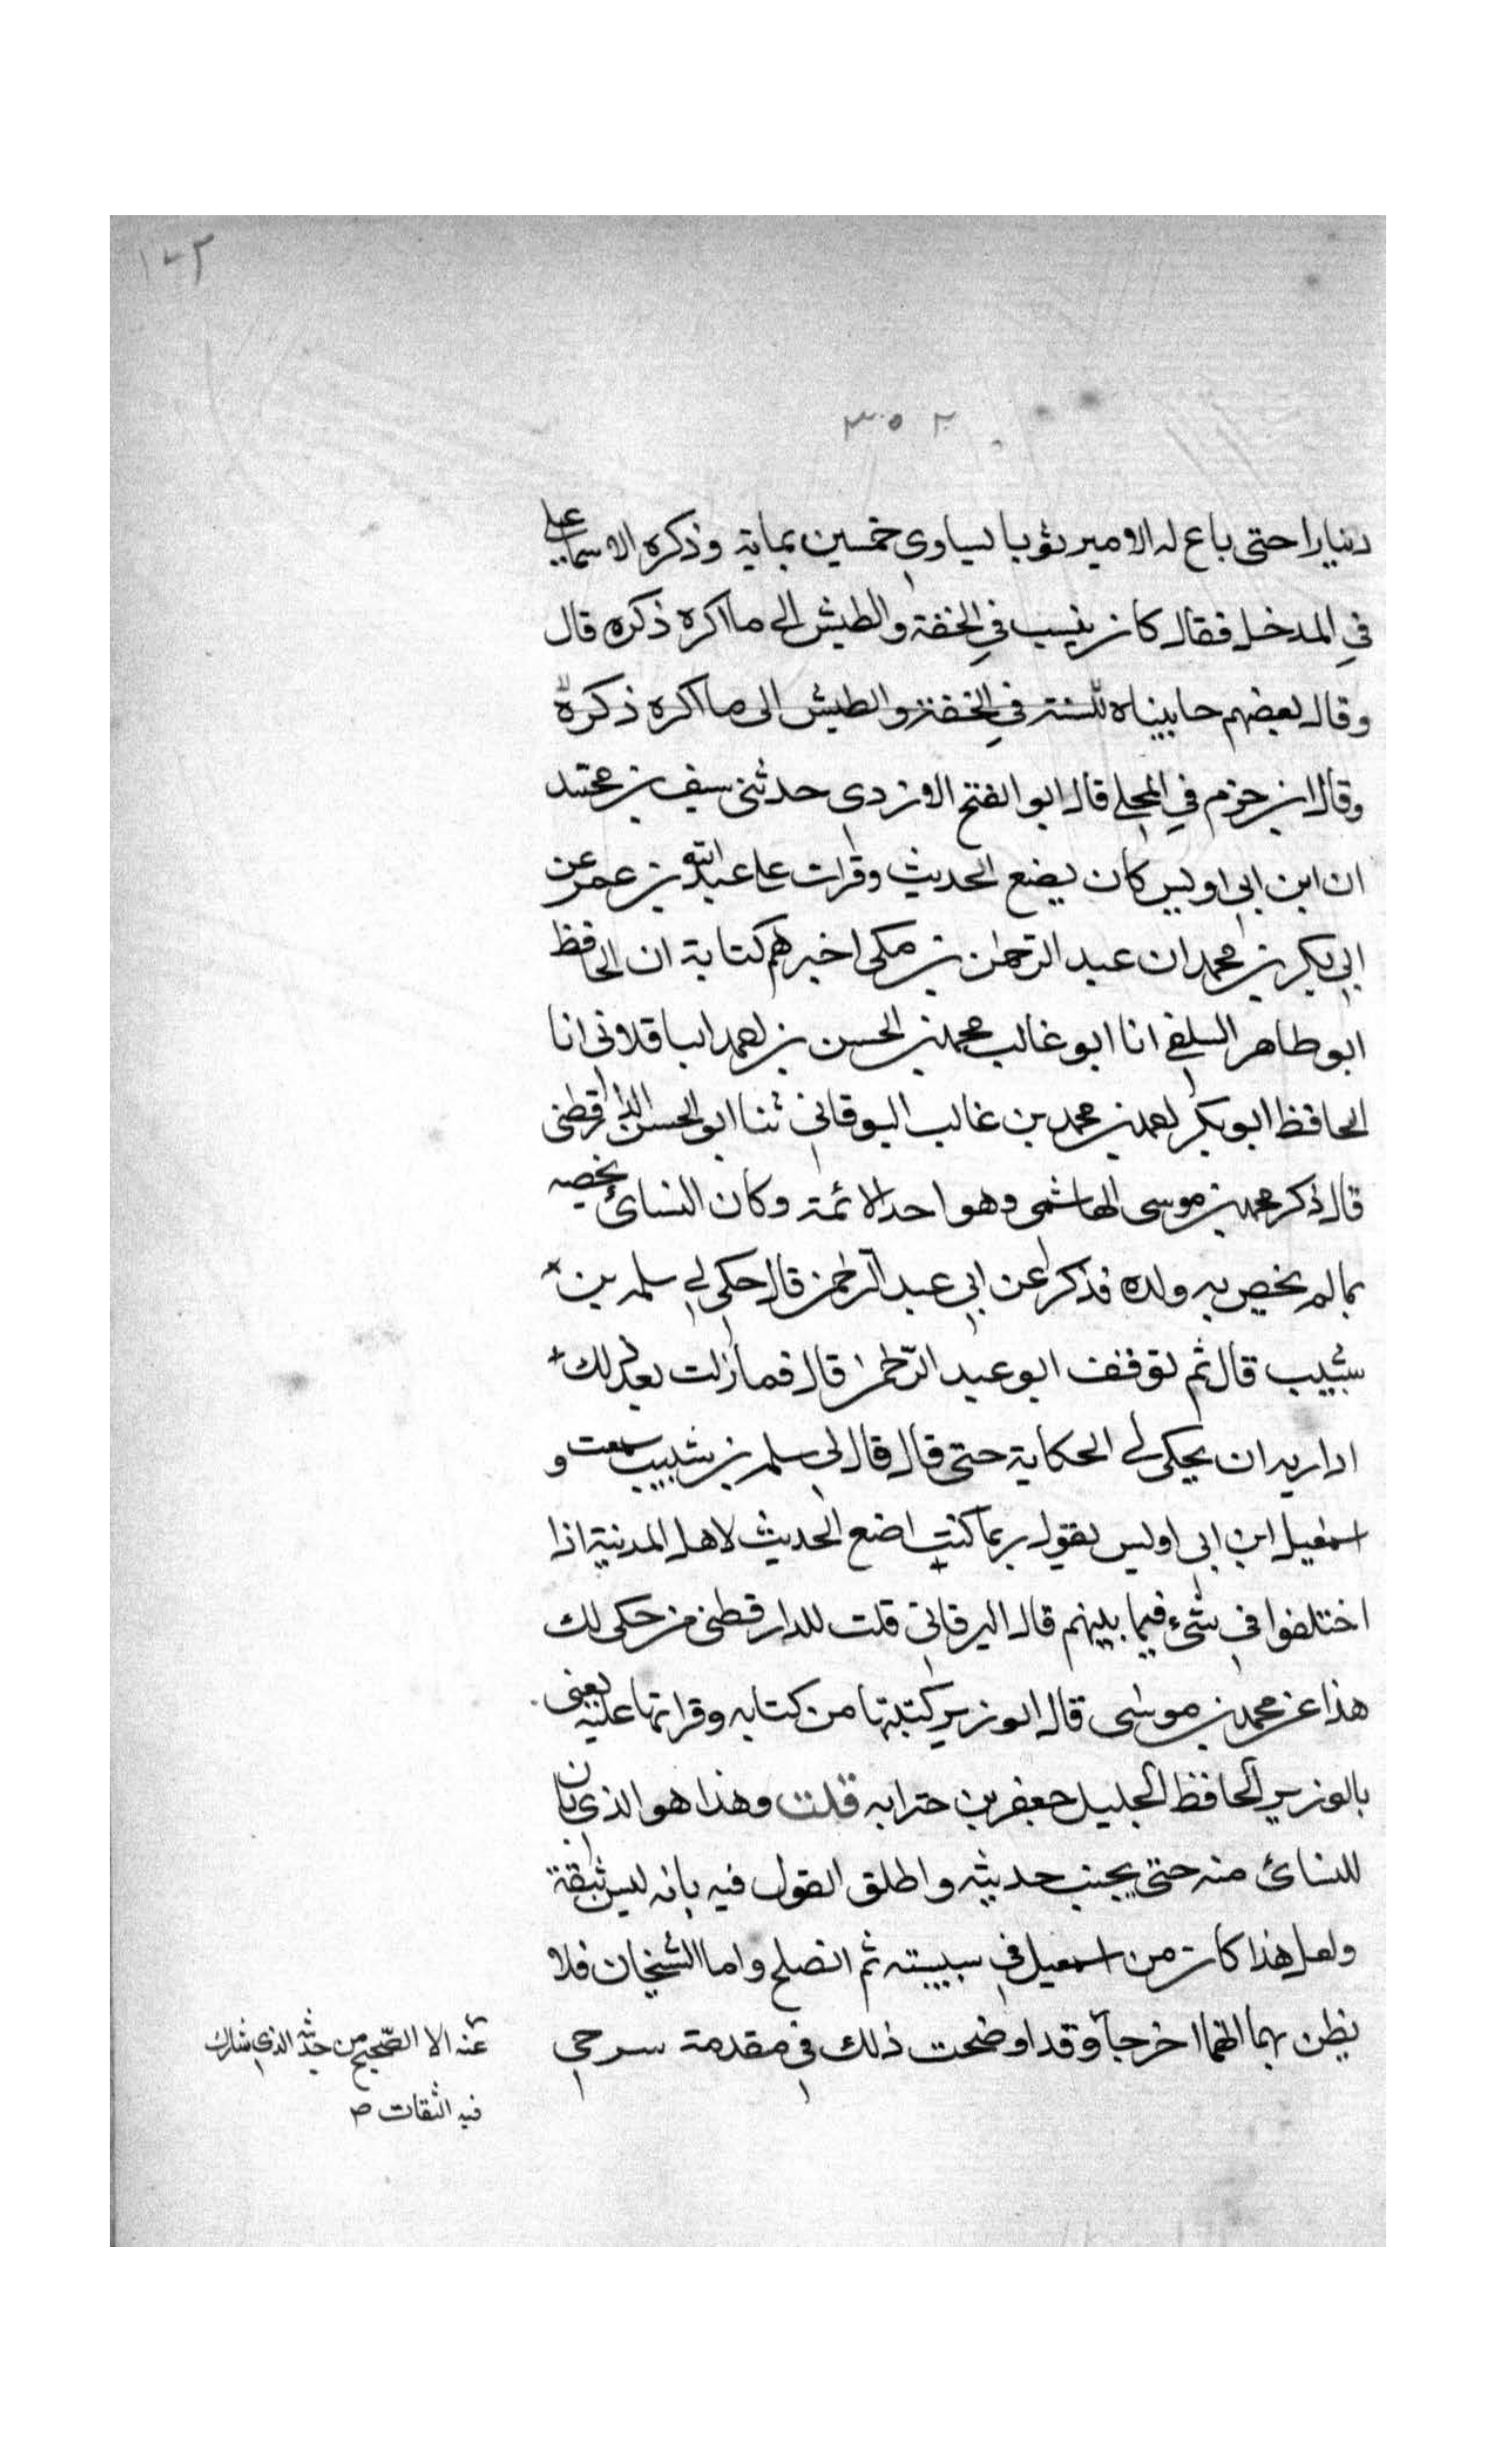 ١٠٢
٣٥٢
دنيارا حتى باع له الامير ثوبا يساوى خمسين بماية وذكره الاسماعيلي
في المدخل فقال كان ينسب في الخفة والطيش الى ما اكره ذكره قال
وقال بعضهم جانبناه للسنة في الخفة والطيش الى ما اكره ذكره
وقال ابن حزم في المحلى قال ابو الفتح الازدى حدثنى سيف بن محمد
ان ابن ابى اويس كان يضع الحديث وقرات على عبد الله بن عمر عن
ابى بكر بن محمد ان عبد الرحمن بن مكى اخبرهم كتابة ان الحافظ
ابو طاهر السلفى انا ابو غالب محمد بن الحسن بن احمد الباقلانى انا
الحافظ ابو بكر احمد بن محمد بن غالب البرقانى ثنا ابو الحسن الدارقطنى
قال ذكر محمد بن موسى الهاشمى وهو احد الائمة وكان النسائى يخصه
بما لم يخص به ولده فذكر عن ابى عبد الرحمن قال حكى لى سلمه بن
شبيب قال ثم توقف ابو عبد الرحمن قال فما زلت بعد ذلك
اداريه ان يحكى لى الحكاية حتى قال قال لى سلمه بن شبيب سمعت و
اسمعيل ابن ابى اويس يقول ربما كنت اضع الحديث لاهل المدينة اذا
اختلفوا فى شىء فيما بينهم قال البرقانى قلت للدارقطنى من حكى لك
هذا عن محمد بن موسى قال الوزير كتبتها من كتابه وقراتها عليه يعنى
بالوزير الحافظ الجليل جعفر بن حنرابه قلت وهذا هو الذى بان
للنسائى منه حتى يجنب حديثه واطلق القول فيه بانه ليس بثقة
ولعل هذا كان من اسمعيل فى شبيبته ثم انصلح واما الشيخان فلا
يظن بهما انهما اخرجا وقد اوضحت ذلك فى مقدمة سرحى
عنه الا الصحيح من حديثه الذى شارك
فيه الثقات ص